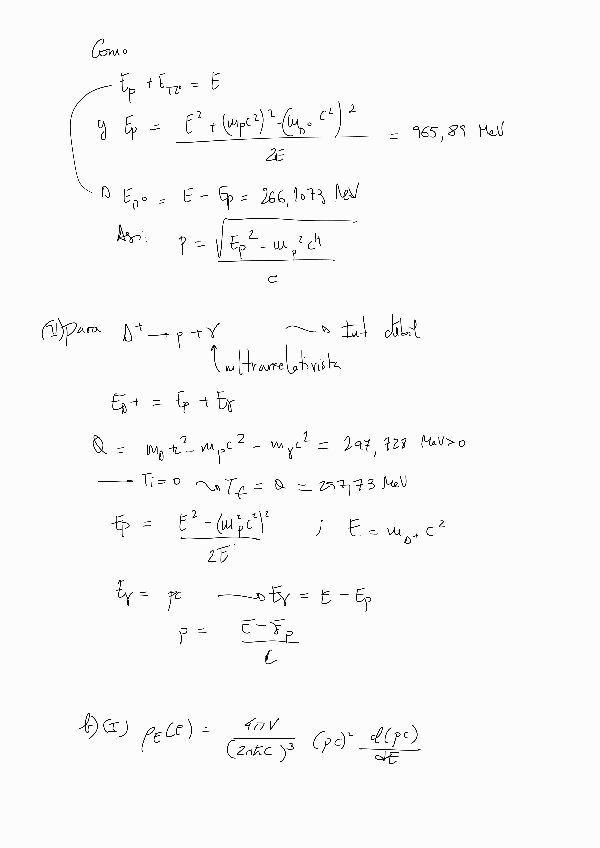 Como
E_p + E_π° = E
y E_p = (E² + (m_p c²)² - (m_π° c²)²) / 2E = 965,89 MeV
→ E_π° = E - E_p = 266,1073 MeV
Así: p = √(E_p² - m_p² c⁴) / c
(II) Para Δ⁺ → p + γ → Int débil
↑ ultrarrelativista
E_Δ⁺ = E_p + E_γ
Q = m_Δ⁺ c² - m_p c² - m_γ c² = 297,728 MeV > 0
→ T_i = 0 → T_f = Q = 297,73 MeV
E_p = (E² - (m_p² c²)²) / 2E ; E = m_Δ⁺ c²
E_γ = pc → E_γ = E - E_p
p = (E - E_p) / c
b) (I) ρ_E(E) = 4πV / (2πħc)³ (pc)² d(pc)/dE